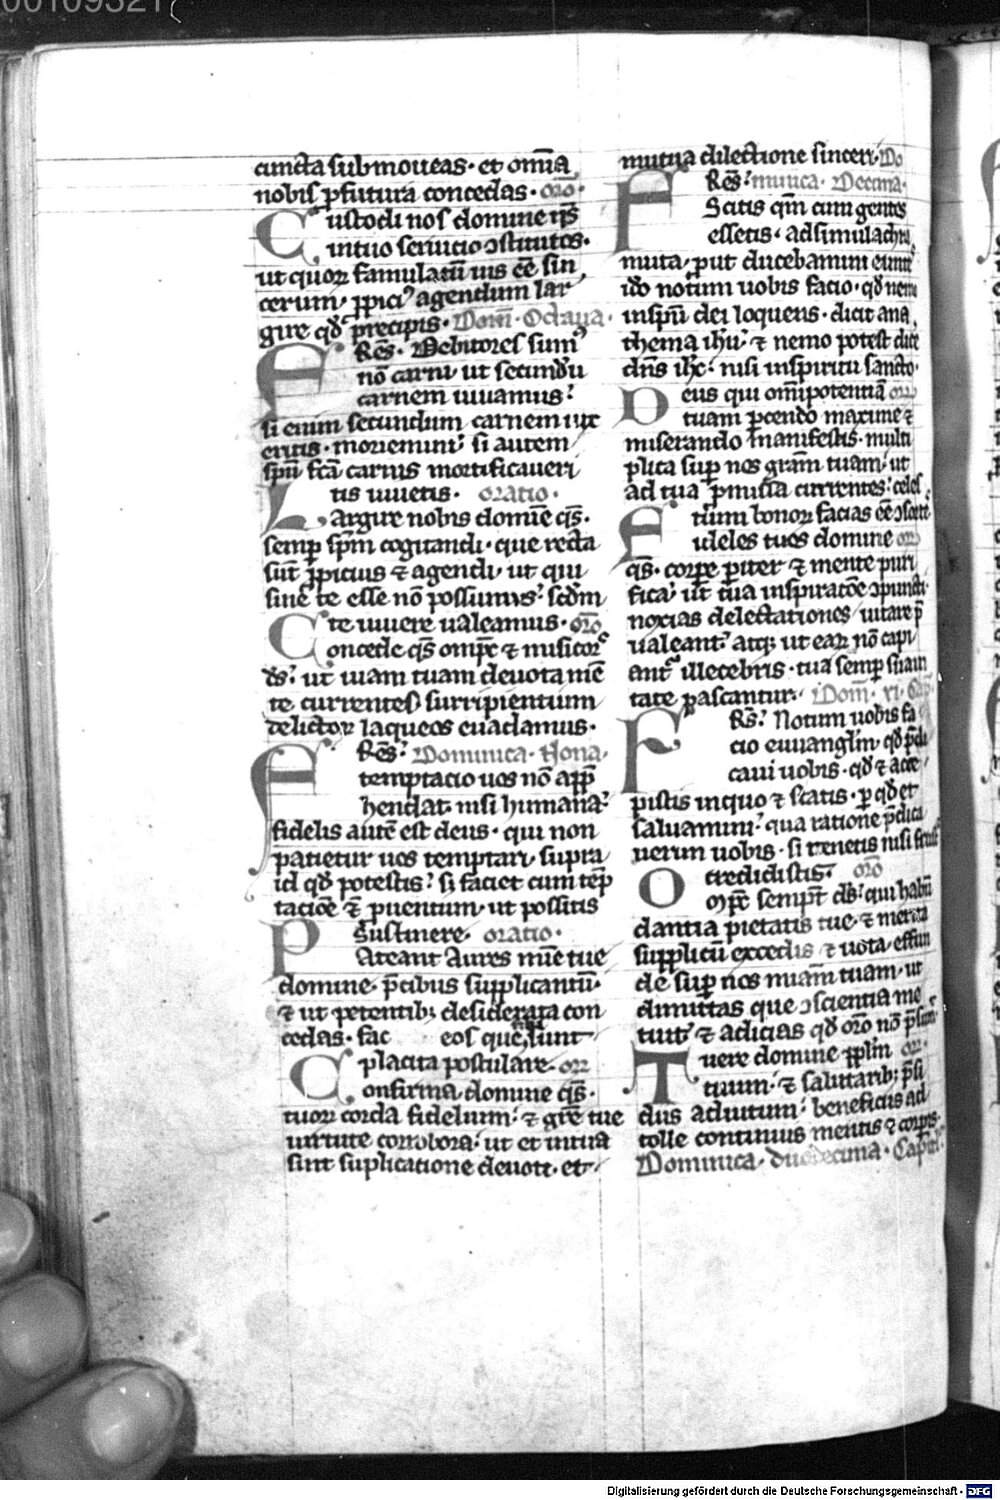 00109321
cuncta submoueas · et om̄ia
nobis ꝓfutura concedas · oro ·
Custodi nos domine q̄s
in tuo seruicio ꝯstitutos ·
ut quoꝝ famulatū uis eē sin
cerum · ꝓpiciꝰ agendum lar
gire qd̄ precipis · Dom̄ · Octaua ·
Fr̄es · Debitores sumꝰ
nō carni ut secundū
carnem uiuamus ?
si enim secundum carnem uix
eritis · moriemini ? si autem
spū fcā carnis mortificaueri
tis uiuetis · oratio ·
Largire nobis domine q̄s ·
semp̱ sp̄m cogitandi · que recta
sūt ꝓpicius ⁊ agendi · ut qui
sine te esse nō possumus ? scd̄m
te uiuere ualeamus · oro
Concede q̄s omp̄c ⁊ misicors
ds̄ ? ut uiam tuam deuota mē
te currentes surripientium
delictoꝝ laqueos euadamus ·
Fr̄es ? Dominica · Nona ·
temptacio uos nō app̄
hendat nisi humana ?
fidelis autē est deus · qui non
patietur uos temptari · supra
id qd̄ potestis ? sꝫ faciet cum tēp
tacioē ⁊ ꝓuentum · ut possitis
sustinere · oratio ·
Pateant aures mīe tue
domine · p̄cibus supplicantiū ·
⁊ ut petentibꝫ desiderata con
cedas · fac eos que sunt
placita postulare · oro
Confirma domine q̄s ·
tuoꝝ corda fidelium ? ⁊ grē tue
uirtute corrobora ? ut et in tua
sint suplicatione deuoti · et
mutua dilectione sinceri · Do
Fr̄es ? minica · Decima ·
Scitis qm̄ cum gentes
essetis · ad simulachra
muta · put ducebamini eunt
ido notum uobis facio · qd̄ nemo
in spū dei loquens · dicit ana
thema ihū ? ⁊ nemo potest dice
dn̄s ihc̄ ? nisi in spiritu sancto ·
Deus qui om̄ipotentiā oro
tuam ꝑcendo maxime ⁊
miserando manifestas · multi
plica sup̱ nos grām tuam · ut
ad tua ꝓmissa currentes ? celes
tium bonoꝝ facias eē ꝯsorte
Fideles tuos domine oro
q̄s · corpe ꝑiter ⁊ mente puri
fica ? ut tua inspiratōe ꝯpuncti
noxias delectationes uitare p̄
ualeant ? atqꝫ ut eaꝝ nō capi
antᷣ illecebris · tua semp̱ suaui
tate pascantur · Dom̄ · xi · Cap̄
Fr̄s ? Notum uobis fa
cio euuangliū · qd̄ p̄di
caui uobis · qd̄ ⁊ acce
pistis in quo ⁊ statis · ꝑ qd̄ et
saluamini ? qua ratione p̄dica
uerim uobis · si tenetis nisi frust
credidistis ? oro
Omp̄c sempit̄ ds̄ ? qui habū
dantia pietatis tue · ⁊ merita
supplicū excedis ⁊ uota · effun
de sup̱ nos mīam tuam · ut
dimittas que ꝯscientia me
tuit ⁊ adicias qd̄ orō nō p̄sum
Tuere domine pplm̄ oro
tuum · ⁊ salutaribꝫ p̄si
diis adiutum ? beneficiis ad
tolle continuis mentis ⁊ corpis
Dominica · duodecima · Capitl̄ ·
Digitalisierung gefördert durch die Deutsche Forschungsgemeinschaft - DFG